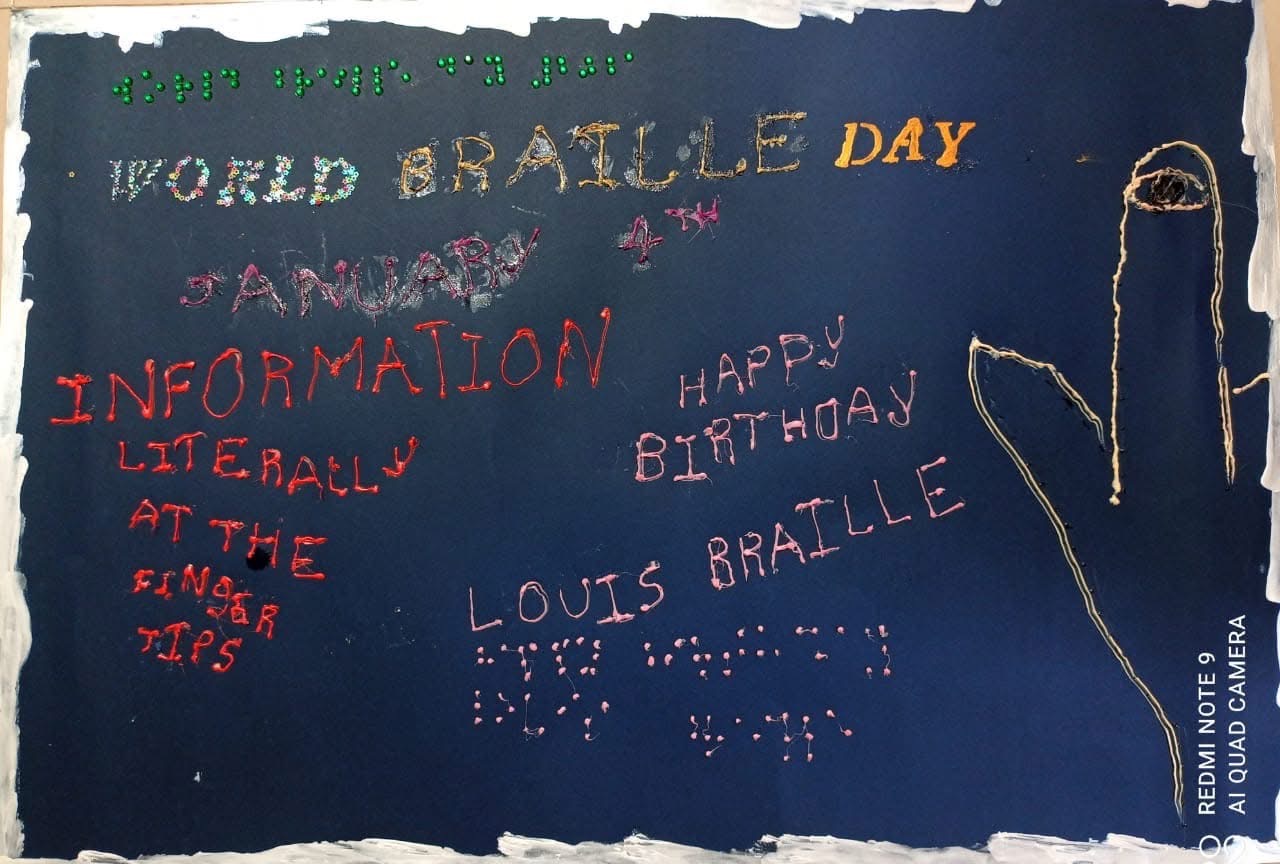 WORLD BRAILLE DAY
JANUARY 4TH
INFORMATION
LITERALLY
AT THE
FINGER
TIPS
HAPPY
BIRTHDAY
LOUIS BRAILLE
REDMI NOTE 9
AI QUAD CAMERA